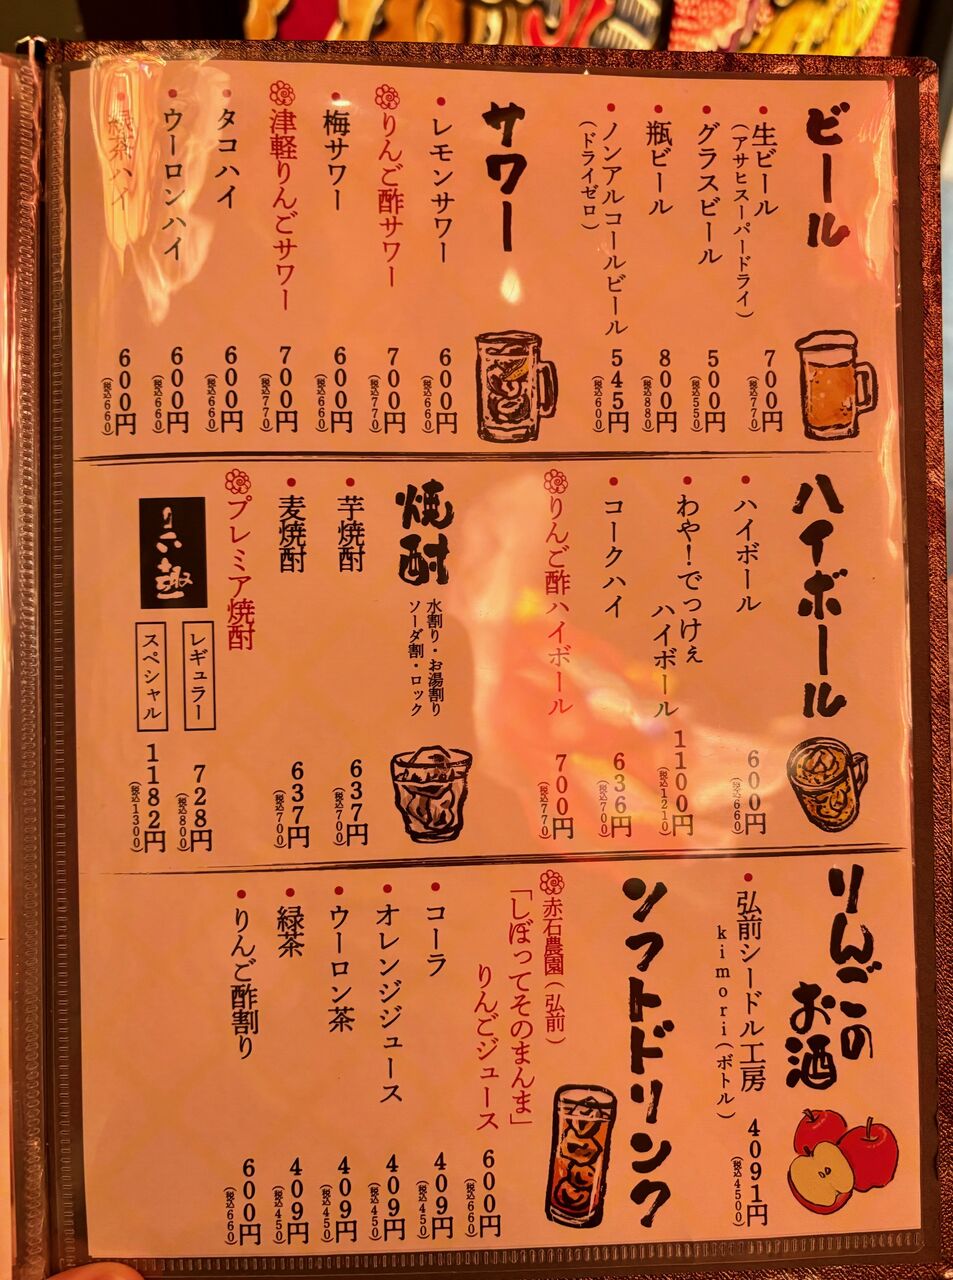 ビール
生ビール
(アサヒスーパードライ)
700円
(税込770)
グラスビール
500円
(税込550)
瓶ビール
800円
(税込880)
ノンアルコールビール
(ドライゼロ)
545円
(税込600)
サワー
レモンサワー
600円
(税込660)
りんご酢サワー
700円
(税込770)
梅サワー
600円
(税込660)
津軽りんごサワー
700円
(税込770)
タコハイ
600円
(税込660)
ウーロンハイ
600円
(税込660)
緑茶ハイ
600円
(税込660)
ハイボール
ハイボール
600円
(税込660)
わや!でっけぇ
ハイボール
1100円
(税込1210)
コークハイ
636円
(税込700)
りんご酢ハイボール
700円
(税込770)
焼酎
水割り・お湯割り
ソーダ割・ロック
芋焼酎
637円
(税込700)
麦焼酎
637円
(税込700)
プレミア焼酎
レギュラー
728円
(税込800)
スペシャル
1182円
(税込1300)
りんごの
お酒
弘前シードル工房
kimori(ボトル)
4091円
(税込4500)
ソフトドリンク
赤石農園(弘前)
「しぼってそのまんま」
りんごジュース
600円
(税込660)
コーラ
409円
(税込450)
オレンジジュース
409円
(税込450)
ウーロン茶
409円
(税込450)
緑茶
409円
(税込450)
りんご酢割り
600円
(税込660)